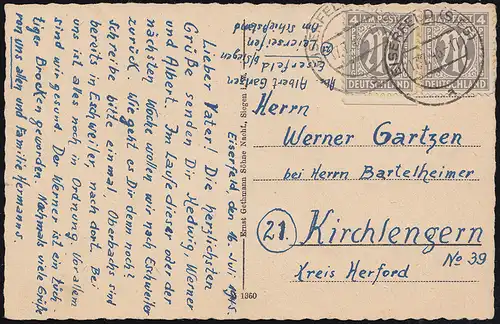 Eiserfeld, den 16. Juli 1945.
Lieber Vater! Die herzlichsten
Grüße senden Dir Hedwig, Werner
und Albert. Im Laufe dieser oder der
nächsten Woche wollen wir nach Eschweiler
zurück. Wie geht es Dir denn noch?
Schreibe bitte einmal. Oberbachs sind
bereits in Eschweiler, nach dort. Bei
uns ist alles noch in Ordnung. Vor allem
sind wir gesund. Der Werner ist ein tüch-
tiger Brocken geworden. Nochmals viele Grüße
von uns allen und Familie Hermanns.
Abs. Albert Gartzen
Eiserfeld
Am Schießstand
Ernst Gethmann Söhne Nachf., Siegen
1360
EISERFELD (SIEG)
4 AM POST 4
DEUTSCHLAND
4 AM POST 4
DEUTSCHLAND
Herrn
Werner Gartzen
bei Herrn Bartelheimer
21 Kirchlengern
No 39
Kreis Herford